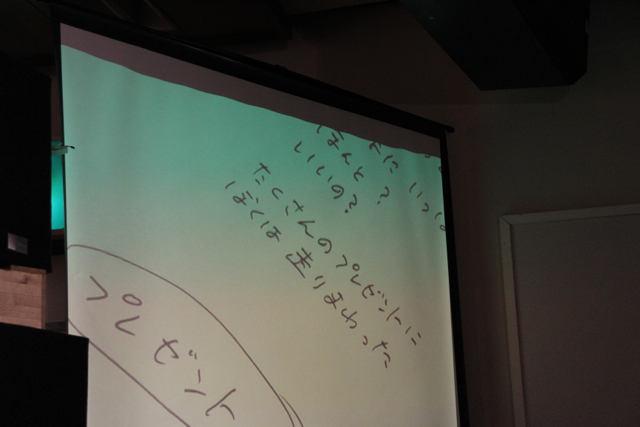 ほんと?
いいの?
たくさんのプレゼントに
ぼくは 走りまわった
プレゼント